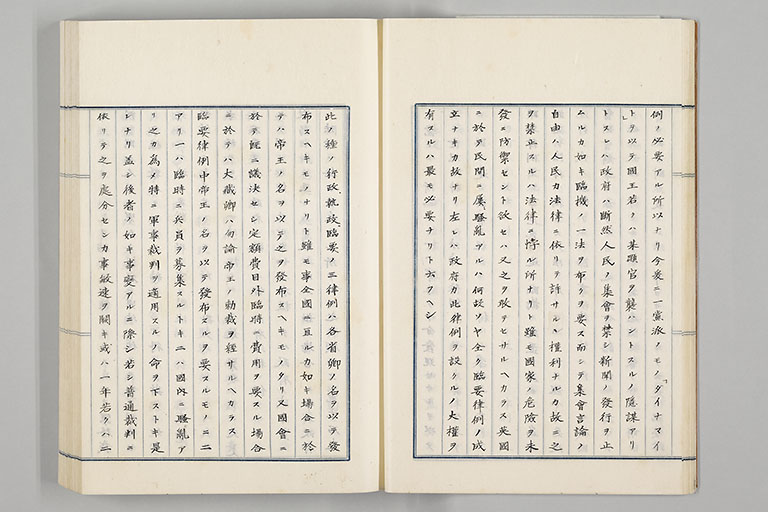 例ノ必要アル所以ナリ今爰ニ一黨派ノモノ「ダイナマイ
ト」ヲ以テ國王若クハ某顯官ヲ襲ハントスルノ隠謀アリ
トスレハ政府ハ断然人民ノ集會ヲ禁シ新聞ノ發行ヲ止
ムルカ如キ臨機ノ一法ヲ布クヲ要ス而シテ集會言論ノ
自由ハ人民カ法律ニ依リテ許サルヽ權利ナルカ故ニ之
ヲ禁止スルハ法律ニ悖ル所ナリト雖モ國家ノ危險ヲ未
發ニ防禦セント欲セハ又之ヲ敢テセサルヘカラス英國
ニ於テ民間ニ屢騒亂アルハ何故ソヤ全ク臨要律例ノ成
立ナキカ故ナリ左レハ政府カ此律例ヲ設クルノ大權ヲ
有スルハ最モ必要ナリト云フヘシ
此ノ種ノ行政執政臨要ノ三律例ハ各省卿ノ名ヲ以テ發
布スヘキモノナリト雖モ事全國ニ亘ルカ如キ場合ニ於
テハ帝王ノ名ヲ以テ之ヲ發布スヘキモノタリ又國會ニ
於テ既ニ議決セシ定額費目外臨時ニ費用ヲ要スル場合
ニ於テハ大蔵卿ハ勿論帝王ノ勅裁ヲ經サルヘカラス
臨要律例中帝王ノ名ヲ以テ發布スルヲ要スルモノニ二
アリ一ハ臨時ニ兵員ヲ募集スルトキ二ハ國内ニ騒亂ア
リ之カ為メ特ニ軍事裁判ヲ適用スルノ命ヲ下ストキ是
レナリ蓋シ後者ノ如キ事變アルニ際シ若シ普通裁判ニ
依リテ之ヲ處分センカ事敏速ヲ闕キ或ハ一年若クハ二